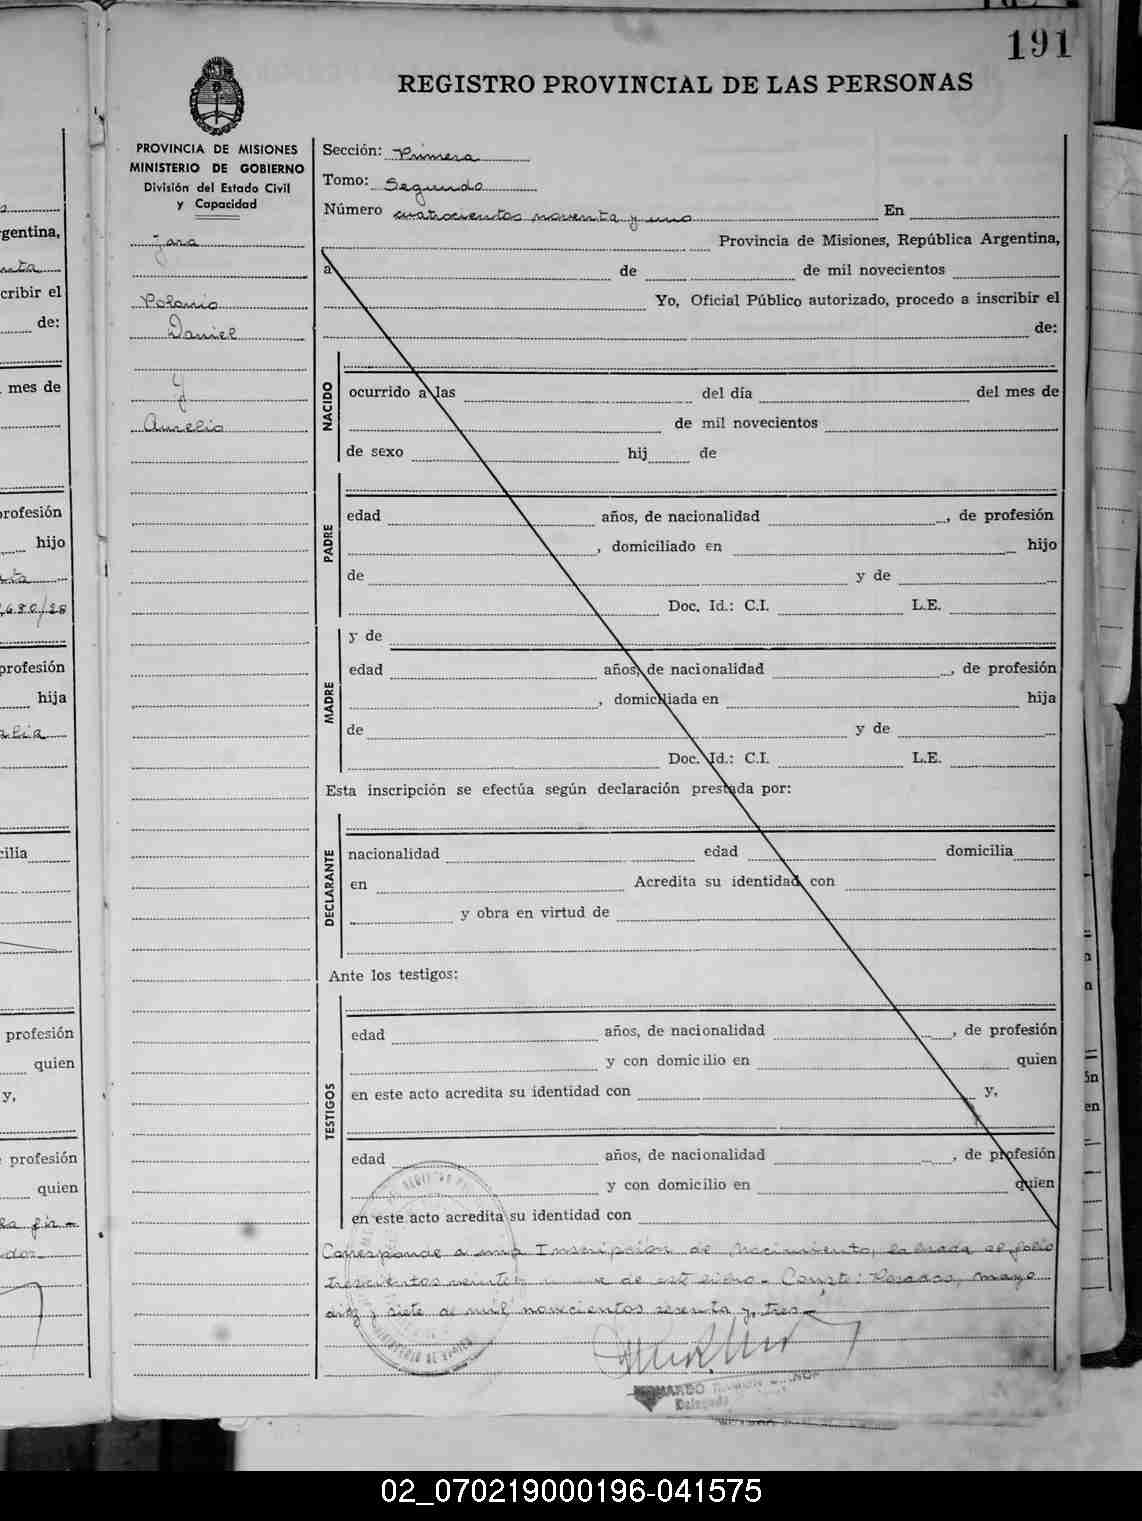 191
REGISTRO PROVINCIAL DE LAS PERSONAS
PROVINCIA DE MISIONES
MINISTERIO DE GOBIERNO
División del Estado Civil
y Capacidad
Jara
Polonio
Daniel
y
Aurelio
Sección: Primera
Tomo: Segundo
Número cuatrocientos noventa y uno En
Provincia de Misiones, República Argentina,
a de de mil novecientos
Yo, Oficial Público autorizado, procedo a inscribir el
de:
NACIDO
ocurrido a las del día del mes de
de mil novecientos
de sexo hij de
PADRE
edad años, de nacionalidad , de profesión
, domiciliado en hijo
de y de
Doc. Id.: C.I. L.E.
MADRE
y de
edad años, de nacionalidad , de profesión
, domiciliada en hija
de y de
Doc. Id.: C.I. L.E.
Esta inscripción se efectúa según declaración prestada por:
DECLARANTE
nacionalidad edad domicilia
en Acredita su identidad con
y obra en virtud de
Ante los testigos:
TESTIGOS
edad años, de nacionalidad , de profesión
y con domicilio en quien
en este acto acredita su identidad con y,
edad años, de nacionalidad , de profesión
y con domicilio en quien
en este acto acredita su identidad con
Corresponde a una Inscripción de Nacimiento, labrada al folio
trescientos veinte de este libro. Conste: Posadas, mayo
diez y siete de mil novecientos sesenta y tres
Delegado
gentina,
cribir el
de:
mes de
profesión
hijo
680/28
profesión
hija
cilia
profesión
quien
y,
profesión
quien
02_070219000196-041575